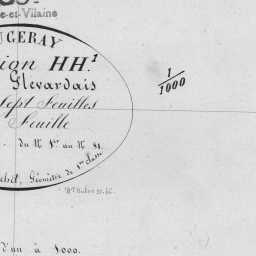 e-et-Vilaine
UGERAY
ion HH.¹
Glévardais
Sept Feuilles
Feuille
du N.º 1.er au N.º 81.
Géomètre de 1.ère classe
1/1000
d'un à 1000.